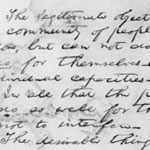 The legitimate object
community of people
do, but can not do
for themselves
dividual capacities
In all that the p
as well for th
not to interfere
The desirable thing